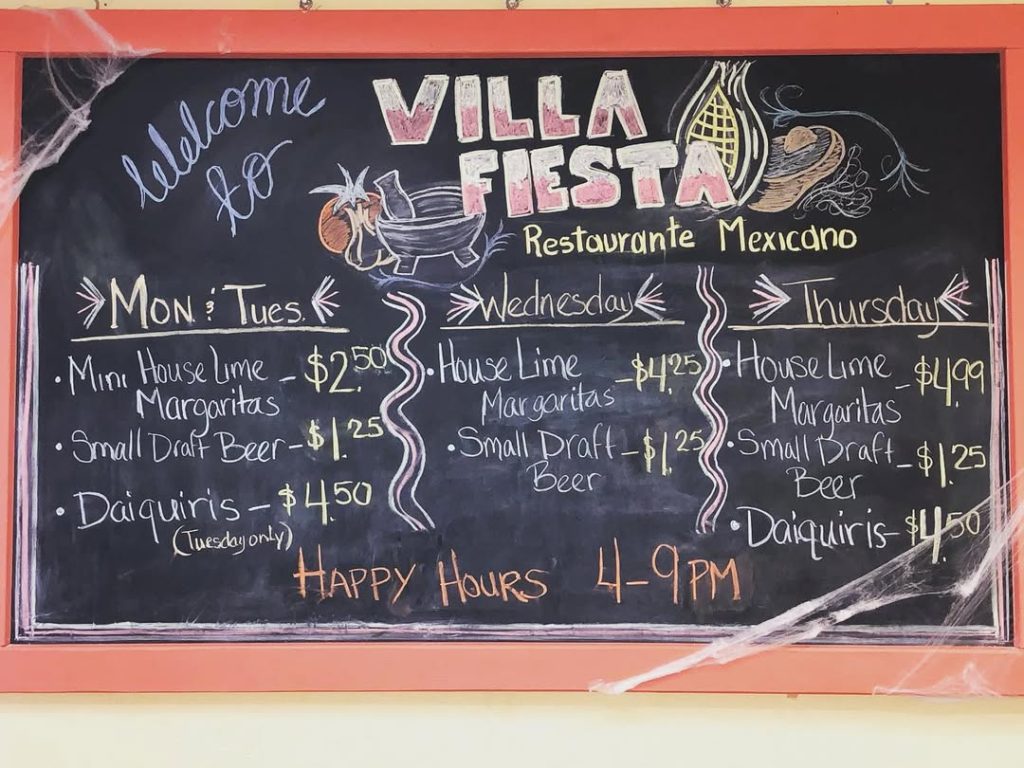 Welcome
to
VILLA
FIESTA
Restaurante Mexicano
Mon & Tues.
• Mini House Lime
Margaritas – $2.50
• Small Draft Beer – $1.25
• Daiquiris – $4.50
(Tuesday only)
Wednesday
• House Lime
Margaritas – $4.25
• Small Draft
Beer – $1.25
Thursday
• House Lime
Margaritas – $4.99
• Small Draft
Beer – $1.25
• Daiquiris – $4.50
Happy Hours 4–9PM